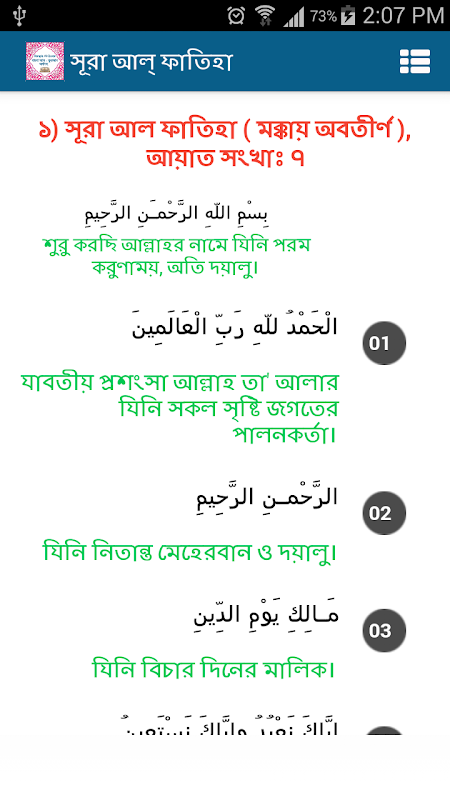 73% 2:07 PM
সূরা আল্ ফাতিহা
১) সূরা আল ফাতিহা ( মক্কায় অবতীর্ণ ),
আয়াত সংখাঃ ৭
بِسْمِ اللّهِ الرَّحْمـَنِ الرَّحِيمِ
শুরু করছি আল্লাহর নামে যিনি পরম
করুণাময়, অতি দয়ালু।
الْحَمْدُ للّهِ رَبِّ الْعَالَمِينَ
01
যাবতীয় প্রশংসা আল্লাহ তা' আলার
যিনি সকল সৃষ্টি জগতের
পালনকর্তা।
الرَّحْمـنِ الرَّحِيمِ
02
যিনি নিতান্ত মেহেরবান ও দয়ালু।
مَـالِكِ يَوْمِ الدِّينِ
03
যিনি বিচার দিনের মালিক।
إِيَّاكَ نَعْبُدُ وإِيَّاكَ نَسْتَعِينُ